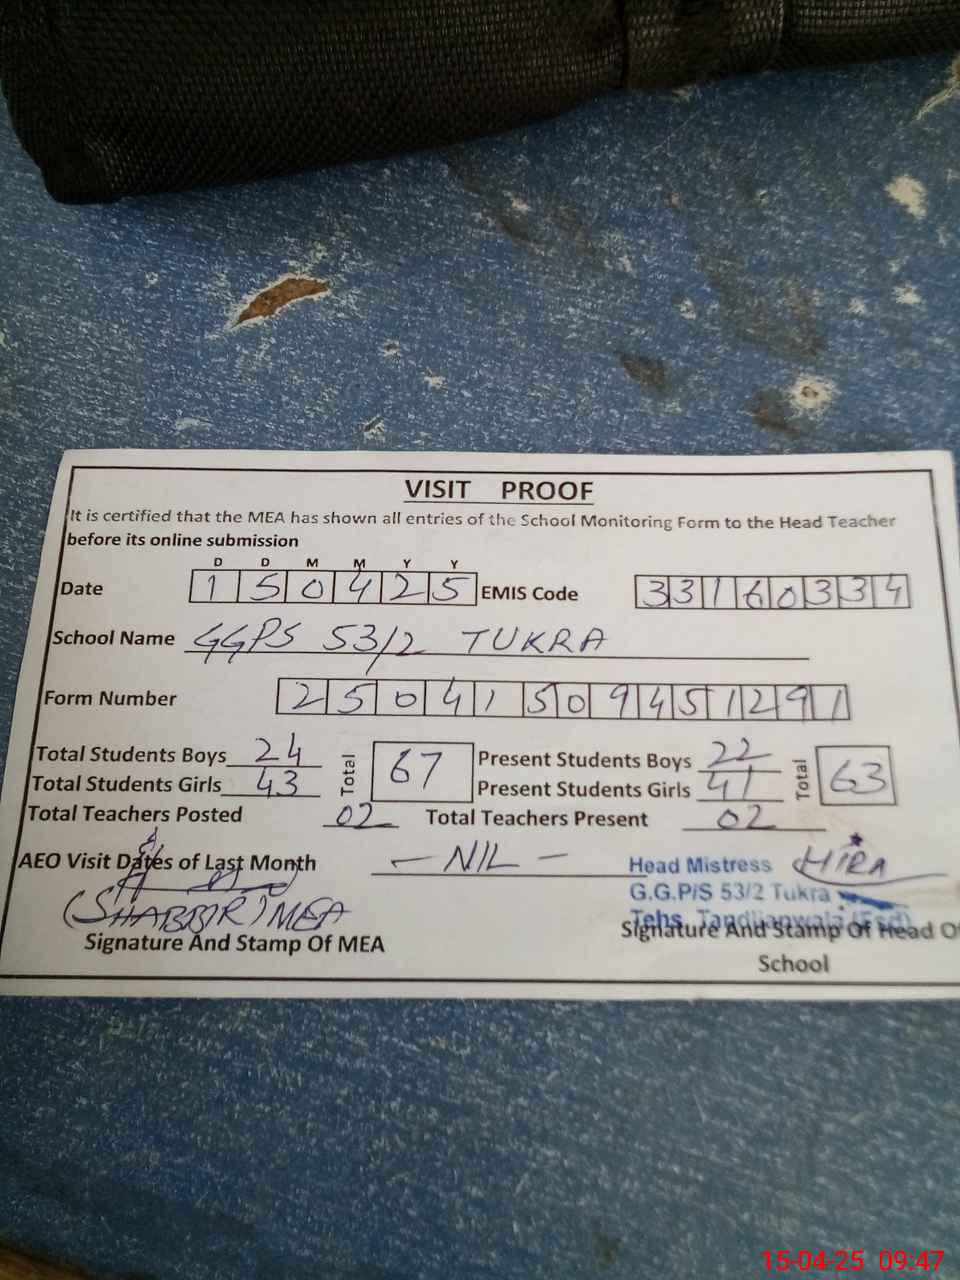 VISIT PROOF
It is certified that the MEA has shown all entries of the School Monitoring Form to the Head Teacher
before its online submission
D D M M Y Y
Date 1 5 0 4 2 5 EMIS Code 3 3 1 6 0 3 3 4
School Name GGPS 53/2 TUKRA
Form Number 2 5 0 4 1 5 0 9 4 5 1 2 9 1
Total Students Boys 24 Total 67 Present Students Boys 22 Total 63
Total Students Girls 43 Present Students Girls 41
Total Teachers Posted 02 Total Teachers Present 02
AEO Visit Dates of Last Month - NIL - Head Mistress HIRA
G.G.P/S 53/2 Tukra
(SHABBIR) MEA Tehs. Tandlianwala (Fsd)
Signature And Stamp Of MEA Signature And Stamp Of Head Of
School
15-04-25 09:47